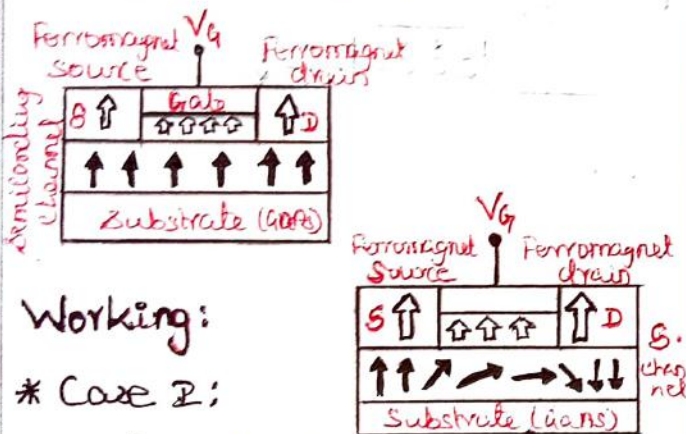 Ferromagnet source
VG
Ferromagnet drain
S
Gate
D
Semiconding channel
Substrate (GaAs)
VG
Ferromagnet Source
Ferromagnet drain
S
D
S. channel
Substrate (GaAs)
Working:
* Case I: